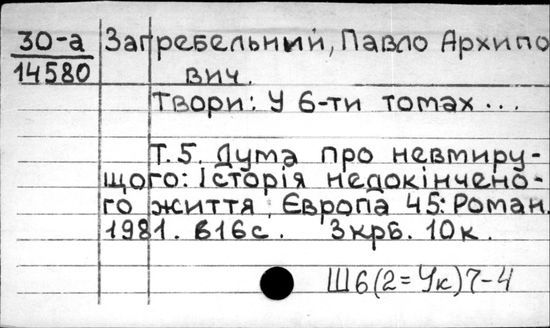 30-а Загребельний, Павло Архипо
14580 вич.
Твори: У 6-ти томах ...
Т.5. Дума про невмиру-
щого: Історія недокінчено-
го життя. Європа 45: Роман.
1981. 816с. 3крб. 10к.
Ш6(2=Ук)7-4